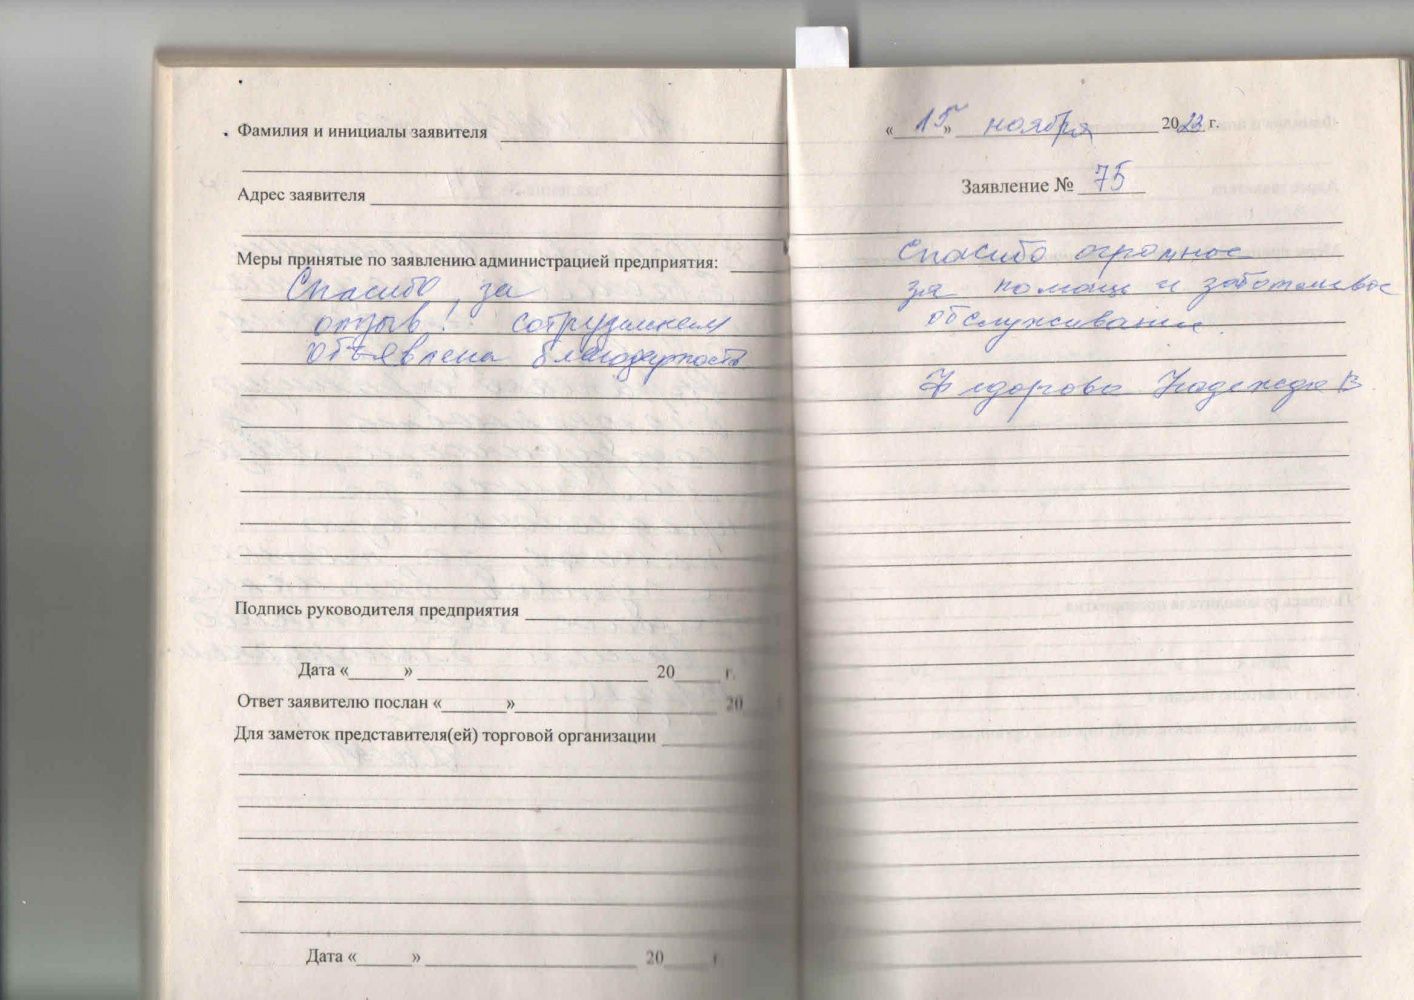 Фамилия и инициалы заявителя
Адрес заявителя
Меры принятые по заявлению администрацией предприятия:
Спасибо за
отзыв! сотрудникам
объявлена благодарность
Подпись руководителя предприятия
Дата «______» ______ 20____ г.
Ответ заявителю послан «______»______ 20
Для заметок представителя(ей) торговой организации
Дата «______» ______ 20____ г
«15» ноября 2022 г.
Заявление № 75
Спасибо огромное
за помощь и заботливое
обслуживание.
Федорова Надежда В